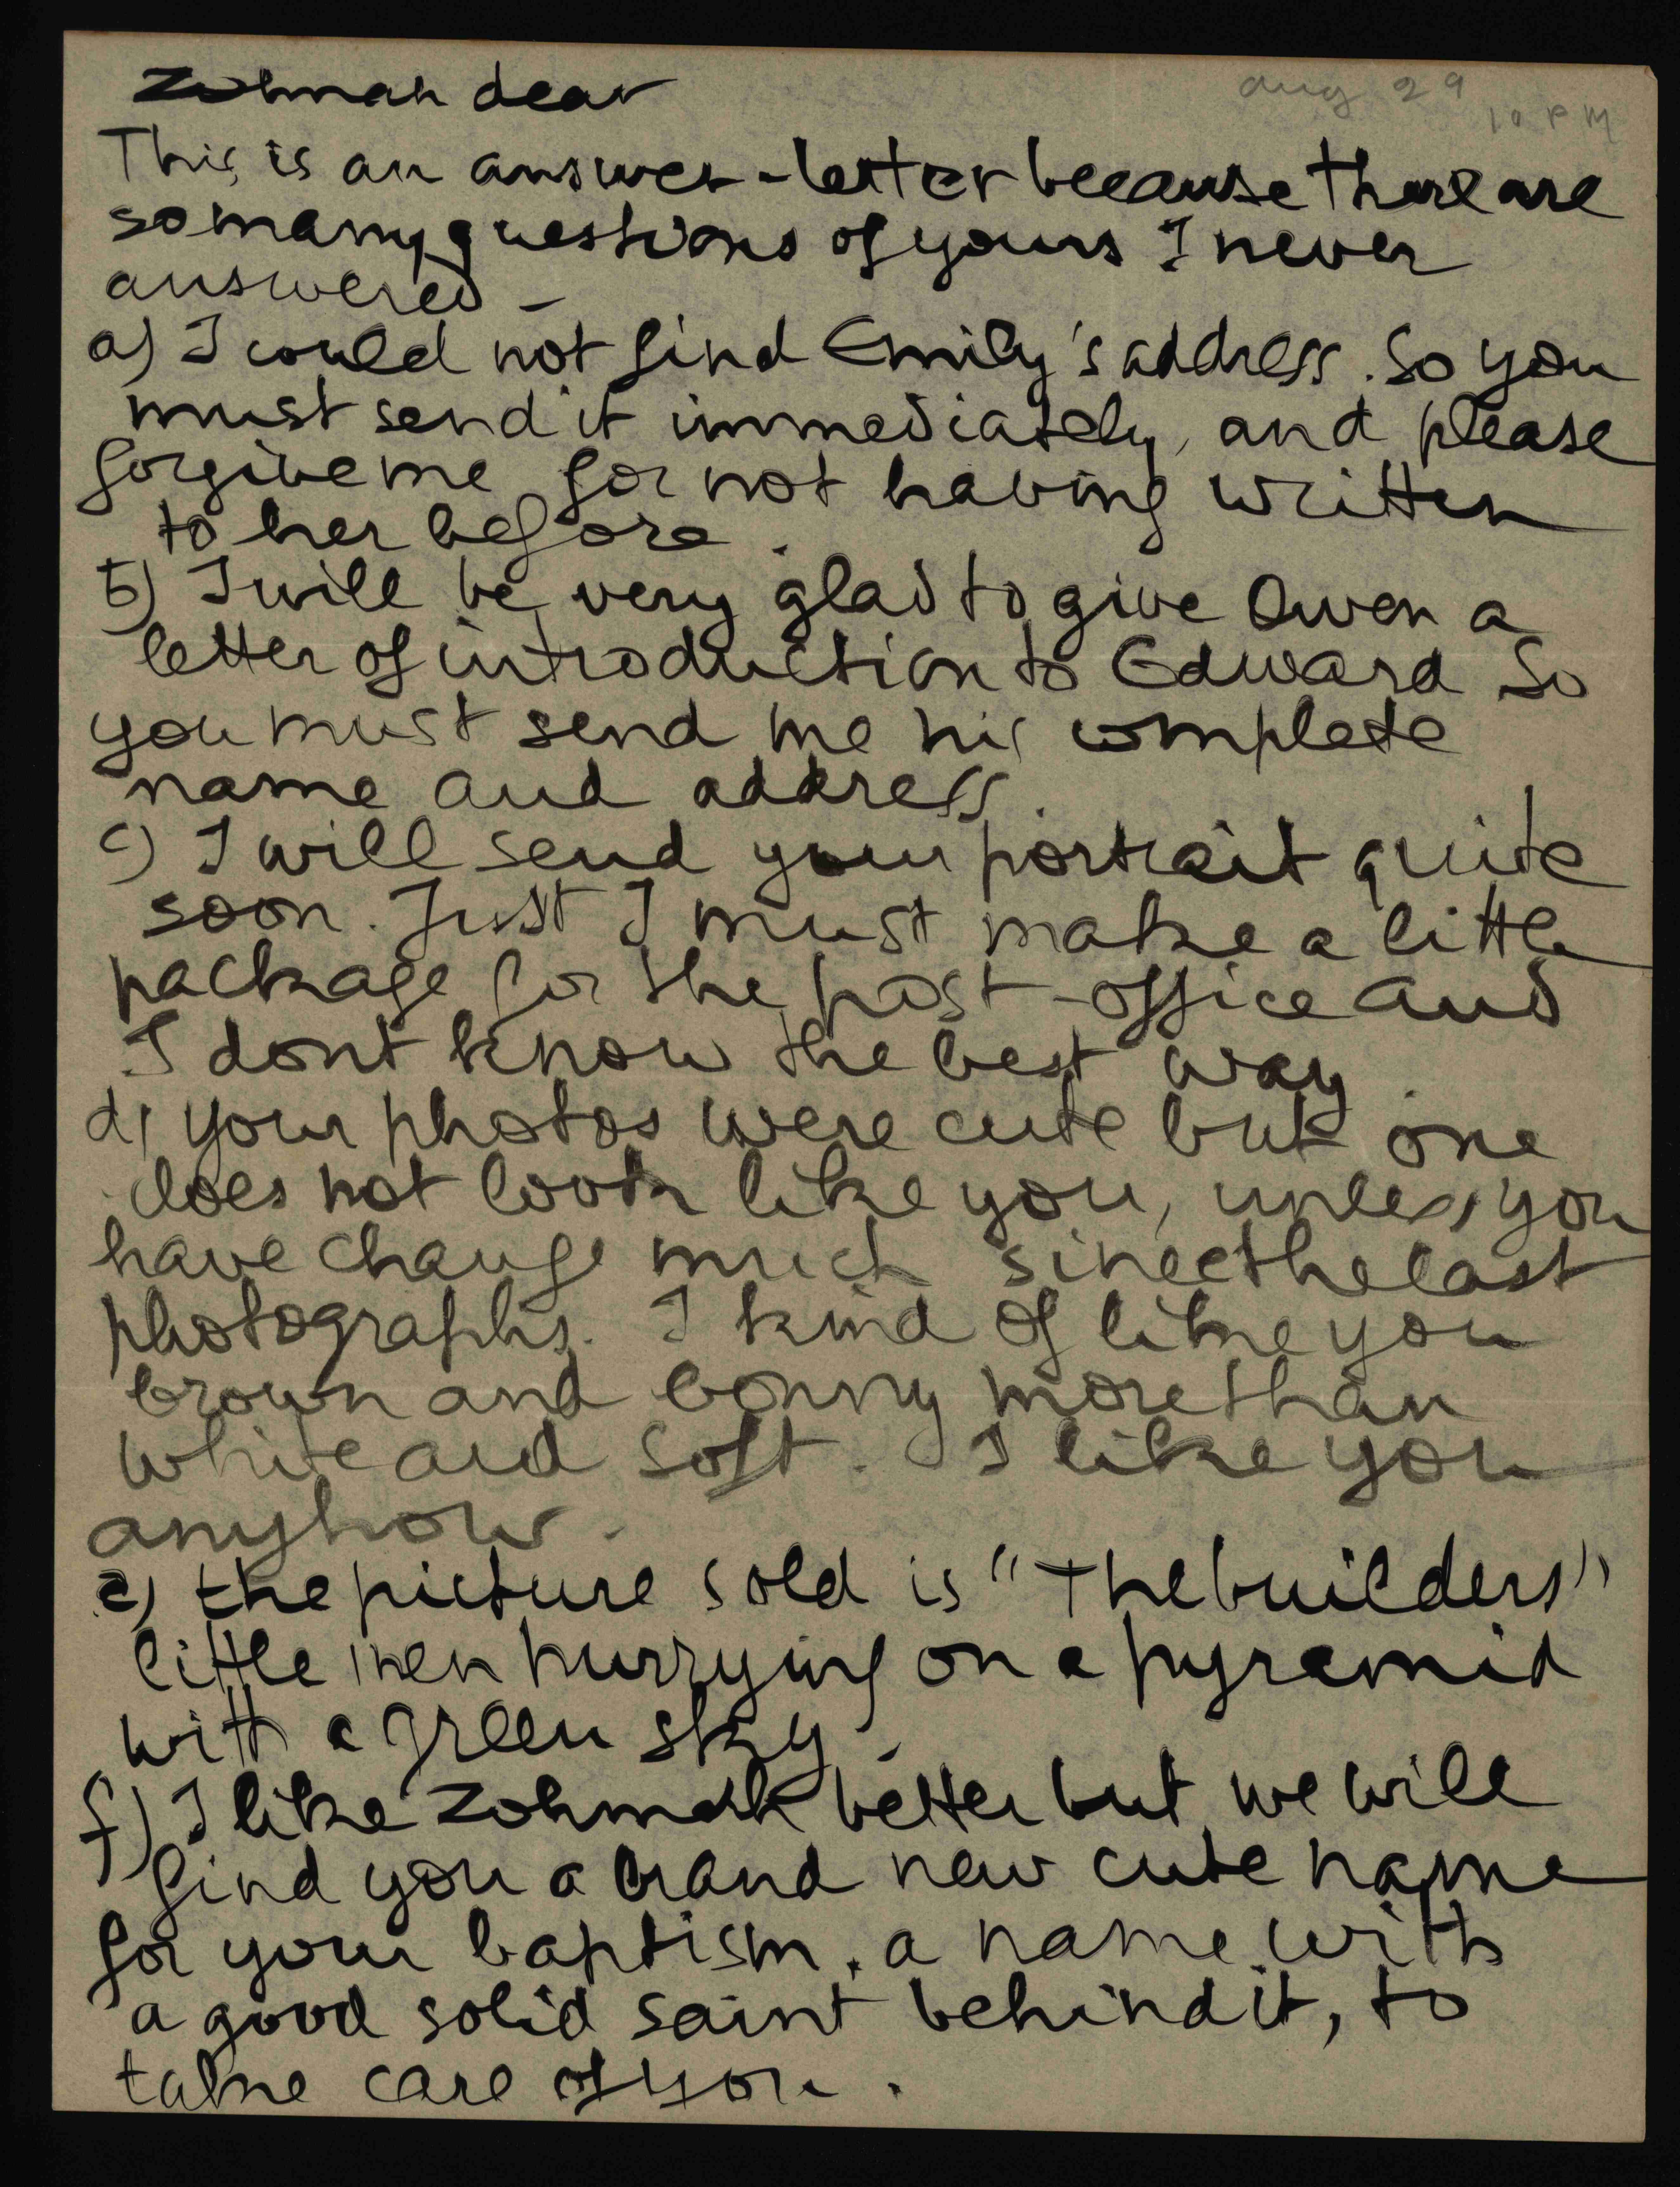 Zohmah dear
aug 29
10 PM
This is an answer-letter because there are
so many questions of yours I never
answered -
a) I could not find Emily's address. So you
must send it immediately, and please
forgive me for not having written
to her before.
b) I will be very glad to give Owen a
letter of introduction to Edward So
you must send me his complete
name and address.
c) I will send your portrait quite
soon. Just I must make a little
package for the post-office and
I dont know the best way.
d) your photos were cute but one
does not look like you, unless you
have change much since the last
photographs. I kind of like you
brown and bonny more than
white and soft. I like you
anyhow.
e) the picture sold is "The builders"
little men hurrying on a pyramid
with a green sky.
f) I like Zohmah better but we will
find you a brand new cute name
for your baptism, a name with
a good solid saint behind it, to
take care of you.